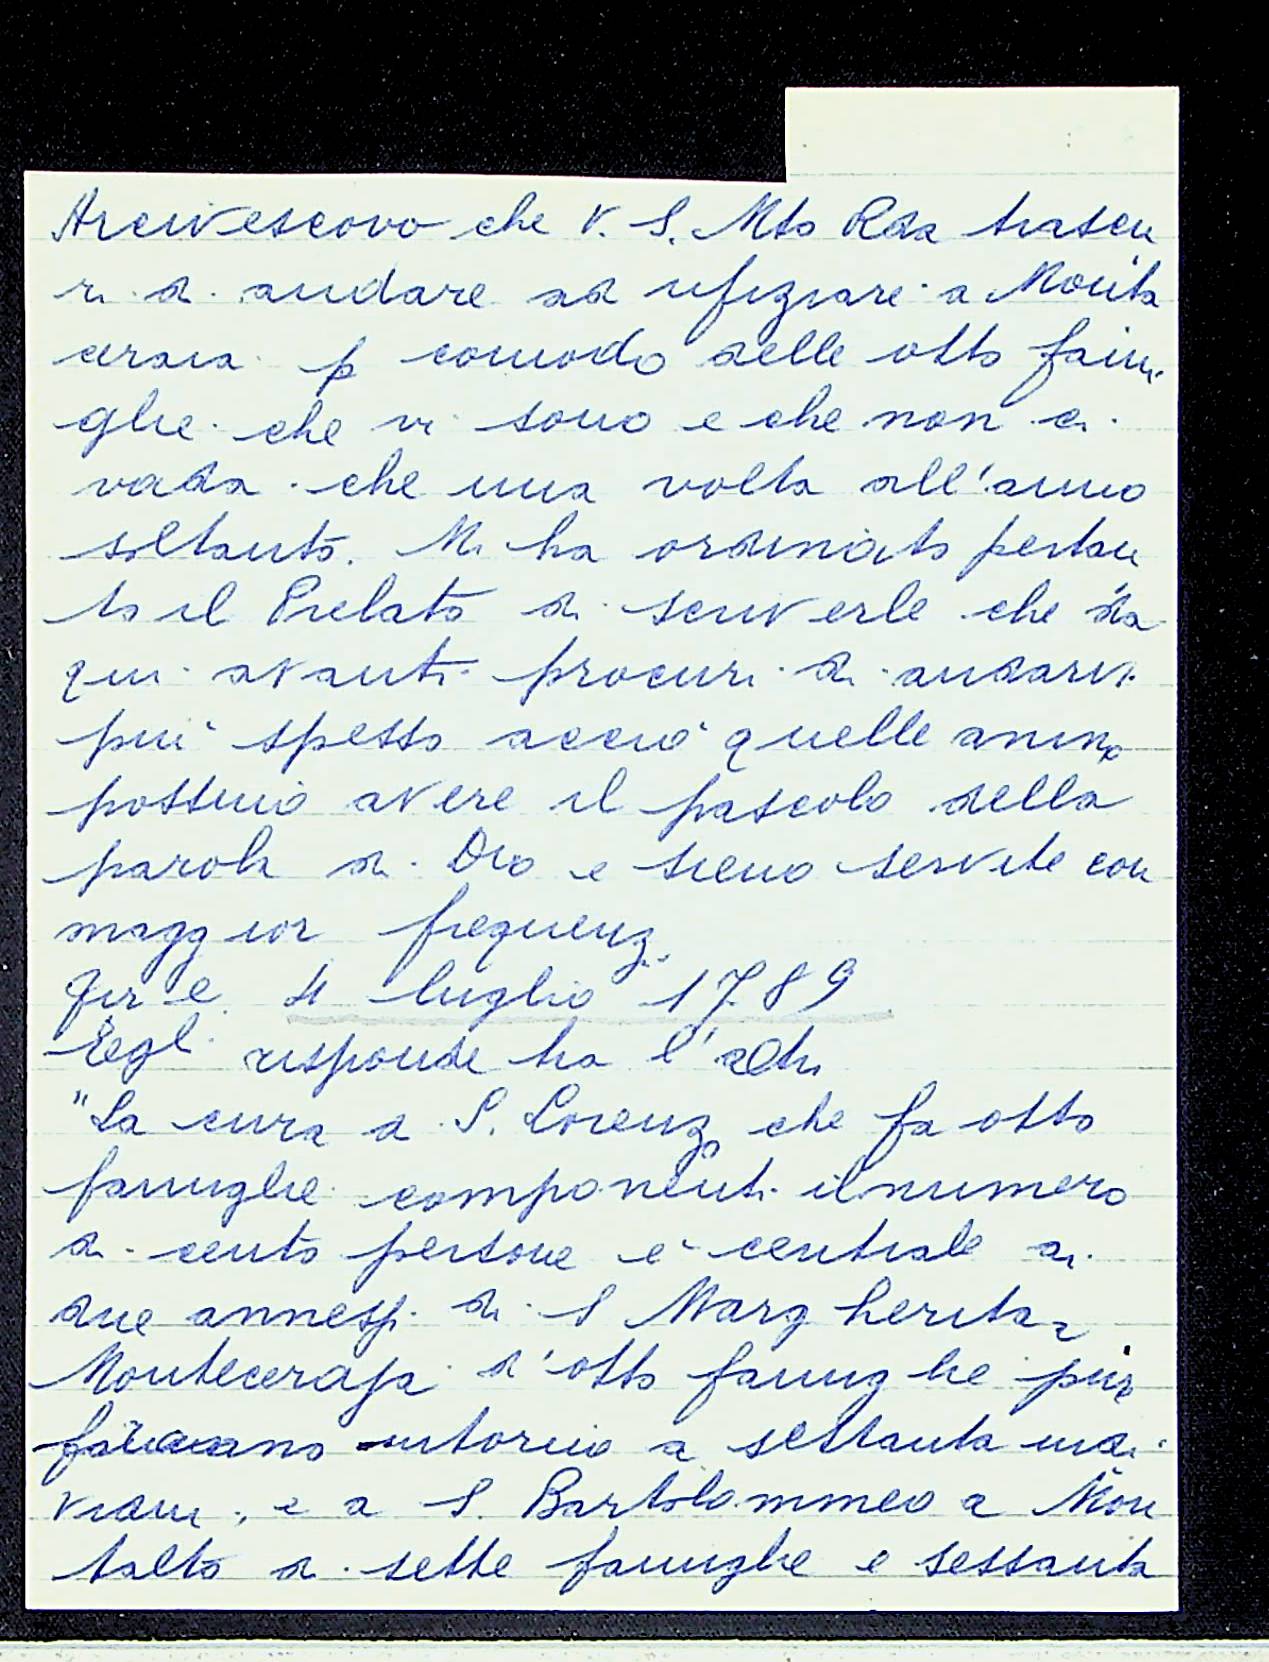 Arcivescovo che V. S. Mto Rda trascu
ri di andare ad ufiziare a Monte
ceraia p comodo delle otto fami
glie che vi sono e che non ci
vada che una volta all'anno
soltanto. Mi ha ordinato pertan
to il Prelato di scriverle che da
qui avanti procuri di andarvi
più spesso acciò quelle anime
possino avere il pascolo della
parola di Dio e sieno servite con
maggior frequenz.
4 luglio 1789
Egli risponde tra l'altr.
"La cura di S. Lorenzo che fa otto
famiglie componenti il numero
di cento persone è centrale ai
due annessi di S Margherita a
Monteceraja d'otto famiglie pur
facciano intorno a settanta indi
vidui, e a S. Bartolommeo a Mon
talto di sette famiglie e sessanta